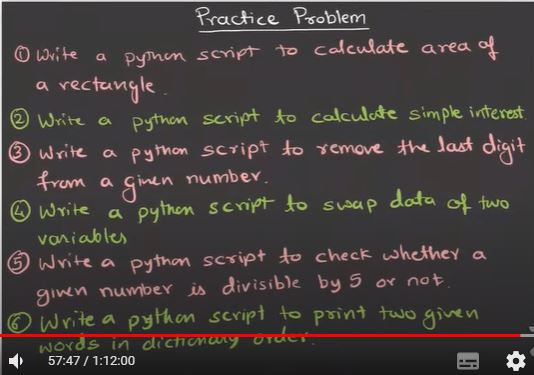 Practice Problem
① Write a python script to calculate area of
a rectangle.
② Write a python script to calculate simple interest.
③ Write a python script to remove the last digit
from a given number.
④ Write a python script to swap data of two
variables
⑤ Write a python script to check whether a
given number is divisible by 5 or not.
⑥ Write a python script to print two given
words in dictionary order.
57:47 / 1:12:00